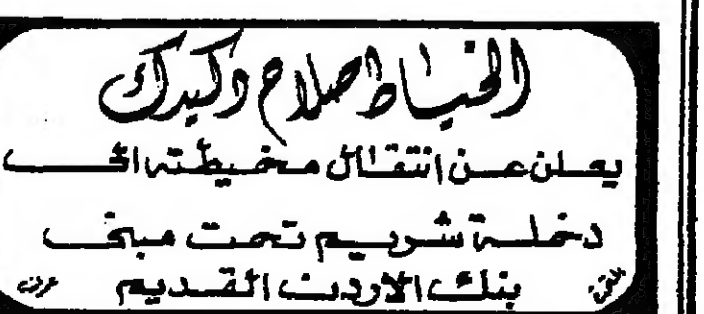 الخياط صلاح دكيدك
يعلن عن انتقال مخيطته الى
دخلة شريم تحت مبنى
بنك الاردن القديم